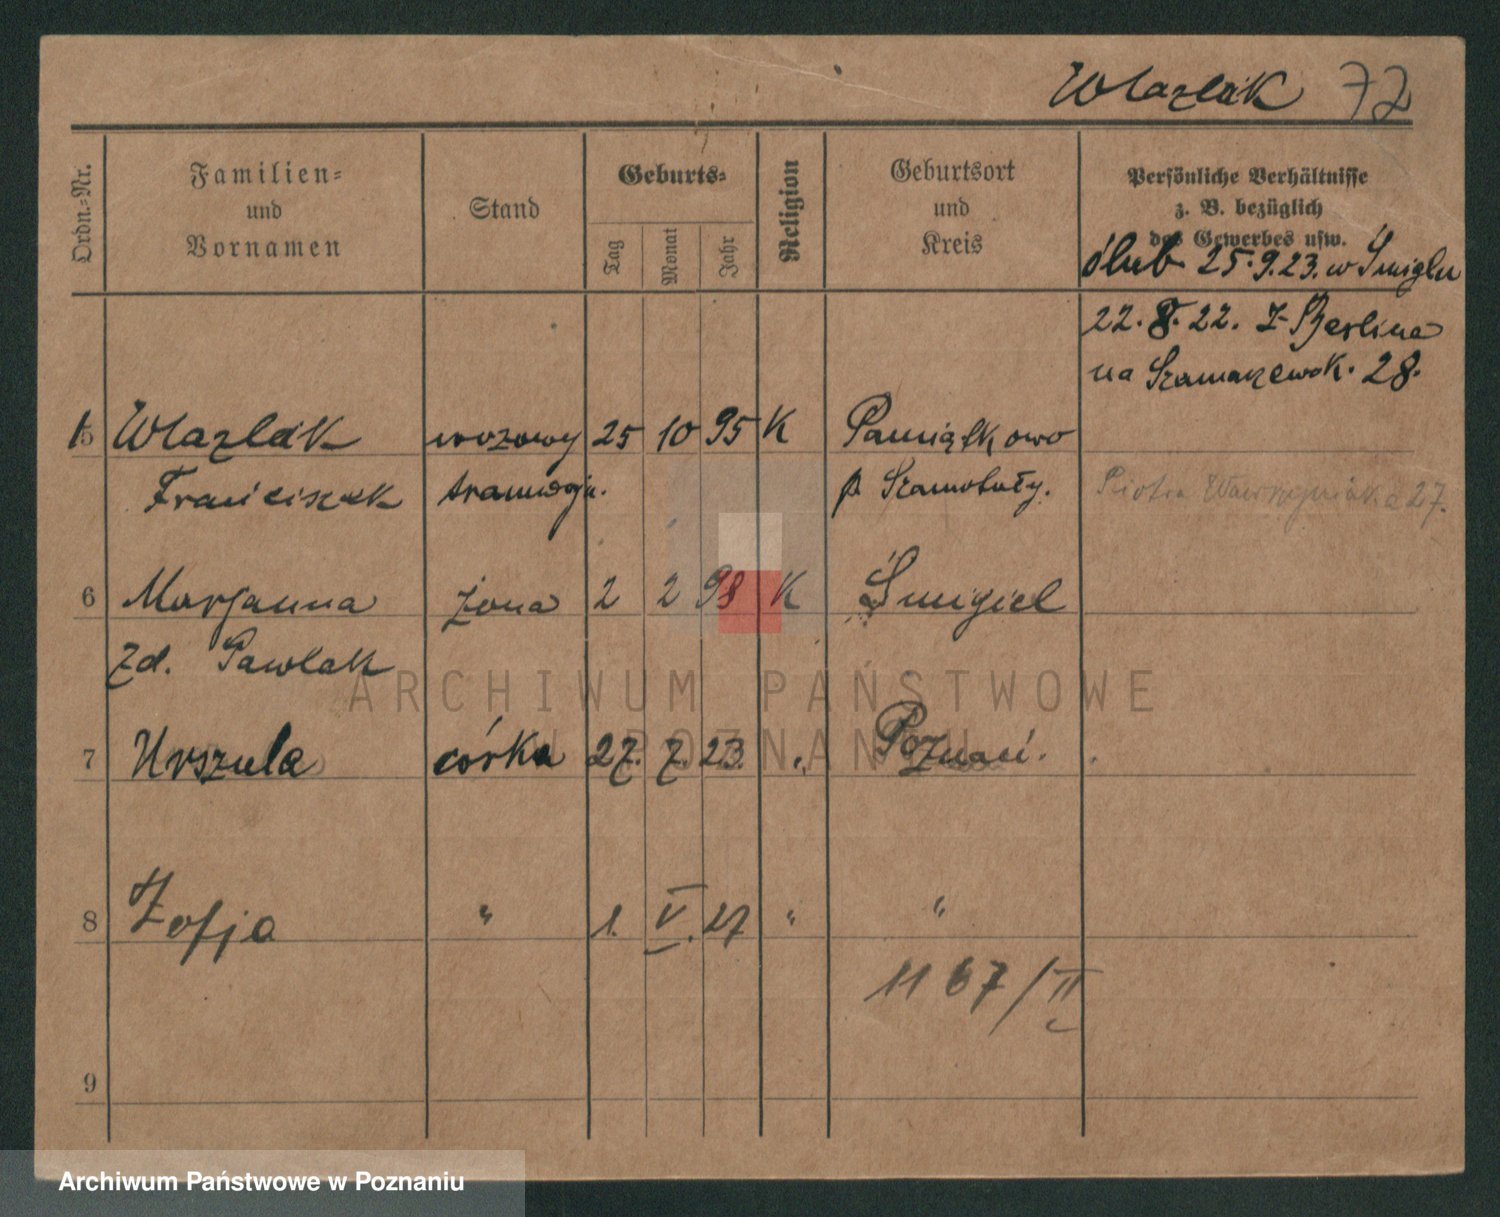 Wlazlak 72
Ordn.=Nr.
Familien=
und
Vornamen
Stand
Geburts=
Tag
Monat
Jahr
Religion
Geburtsort
und
Kreis
Persönliche Verhältnisse
z. B. bezüglich
des Gewerbes usw.
ślub 25.9.23. w Śmiglu
22.8.22. z Berlina
na Szamarzewsk. 28.
1 5 Wlazlak wozowy 25 10 95 K Pamiątkowo
Franciszek tramwaju. p Szamotuły. Piotra Wawrzyniaka 27.
6 Marjanna żona 2 2 98 K Śmigiel
zd. Pawlak
7 Urszula córka 27. 7. 23. „ Poznań.
8 Zofja " 1. V. 27 " "
1167/II
9
ARCHIWUM PAŃSTWOWE
W POZNANIU
Archiwum Państwowe w Poznaniu